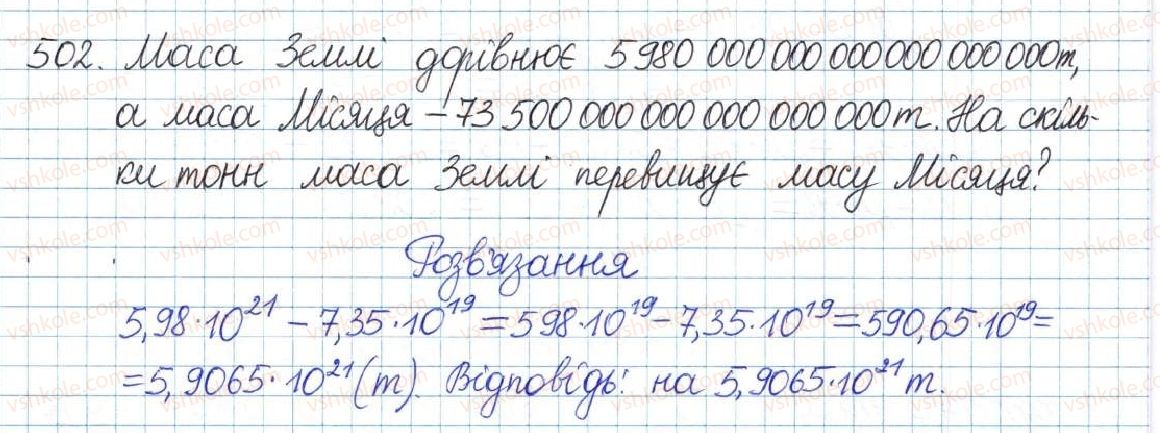 502. Маса Землі дорівнює 5 980 000 000 000 000 000 000 т,
а маса Місяця – 73 500 000 000 000 000 000 т. На скіль-
ки тонн маса Землі перевищує масу Місяця?
Розв'язання
5,98·10²¹ – 7,35·10¹⁹ = 598·10¹⁹ – 7,35·10¹⁹ = 590,65·10¹⁹ =
= 5,9065·10²¹ (т). Відповідь: на 5,9065·10²¹ т.